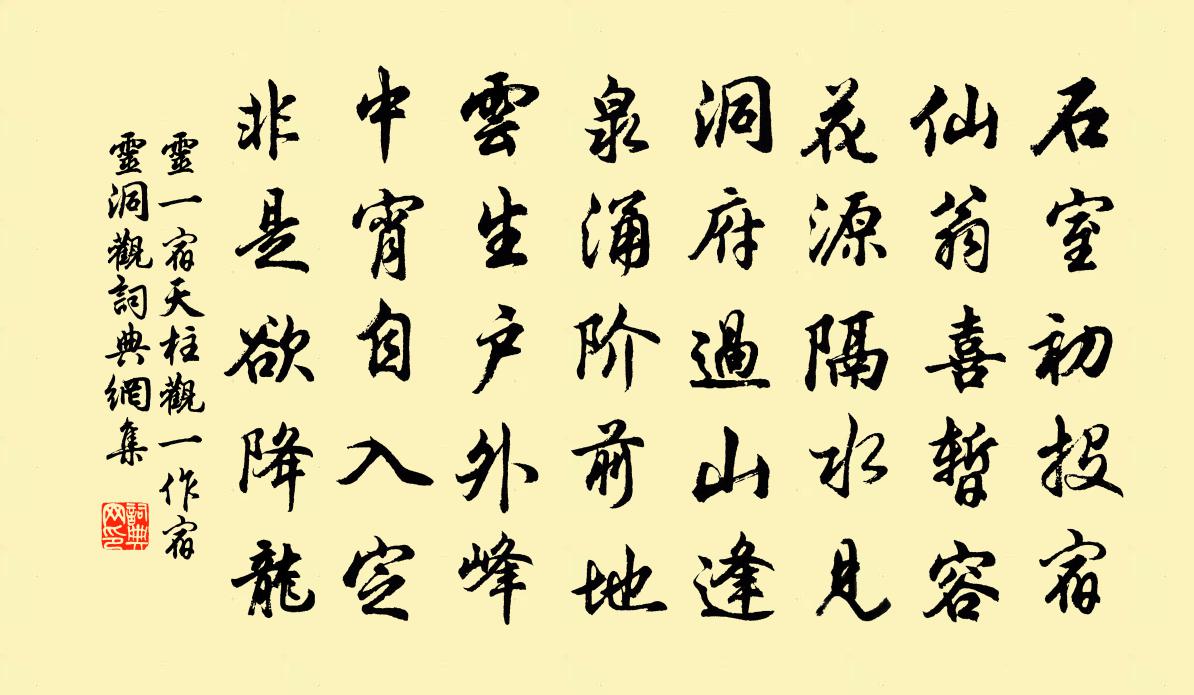 石室初投宿
仙翁喜暫容
花源隔水見
洞府過山逢
泉涌阶前地
雲生户外峰
中宵自入定
非是欲降龍
靈一宿天柱觀一作宿
靈洞觀詞典網集
詞典
网印